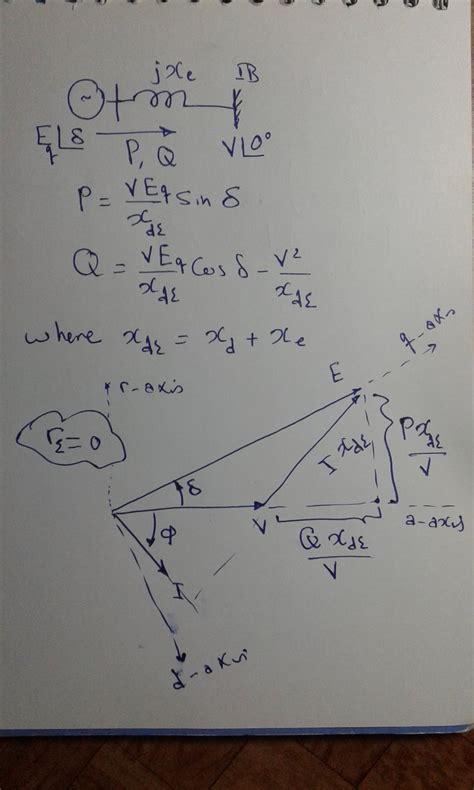 jxₑ IB
~
E_q∠δ V∠0°
P, Q
P = VE_q/x_dΣ Sin δ
Q = VE_q/x_dΣ Cos δ - V²/x_dΣ
where x_dΣ = x_d + xₑ
q-axis
r-axis
E
r_Σ = 0
I x_dΣ
P x_dΣ/V
δ
V
a-axis
Φ
Q x_dΣ/V
I
d-axis